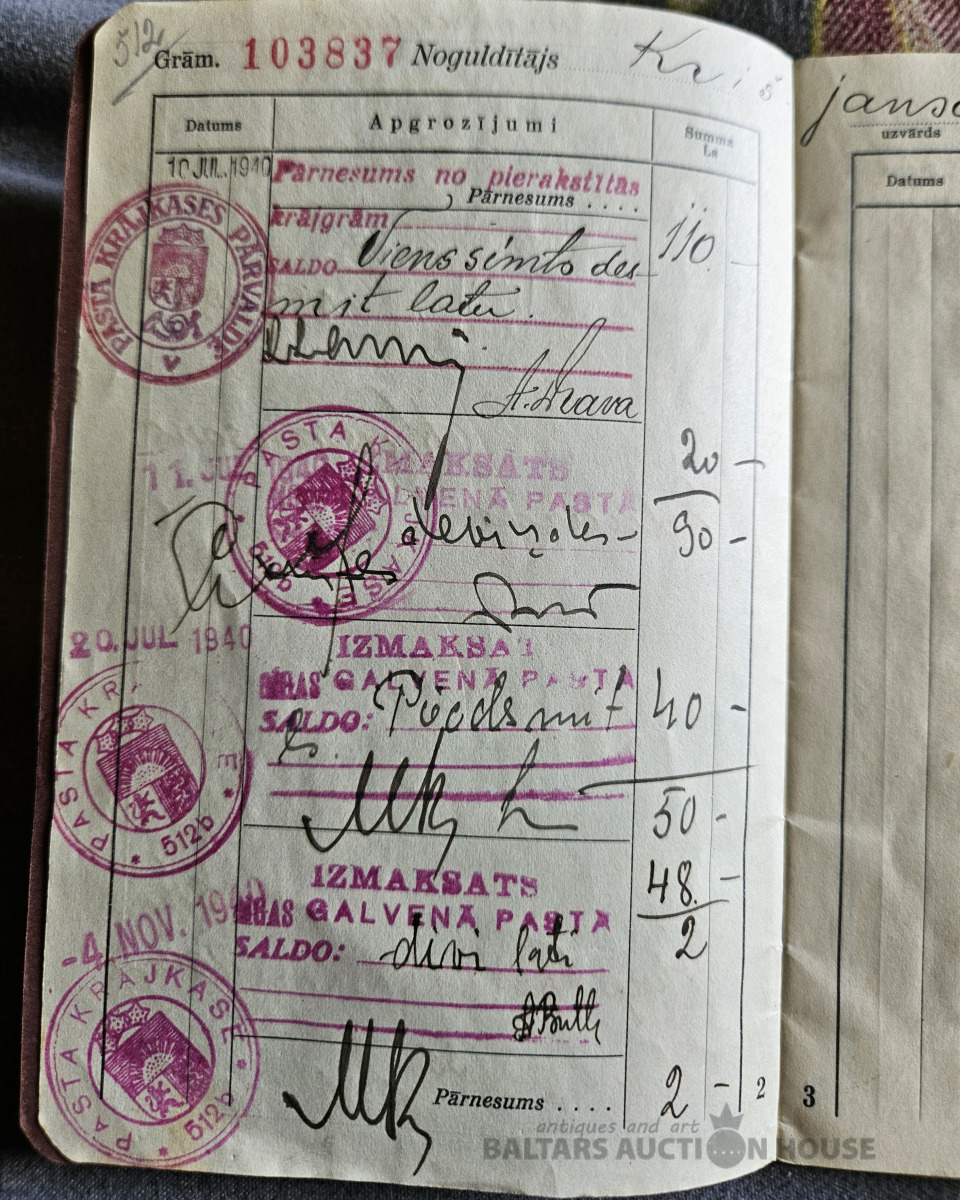 512
Grām. 103837 Noguldītājs Kriš
jans
uzvārds
Datums Apgrozījumi Summa Ls
Datums
10 JUL. 1940 Pārnesums no pierakstītās
Pārnesums . . . .
krājgrām
110
SALDO Viens simts des
mit latu.
PASTA KRĀJKASES PĀRVALDE
11. JUL 1940 IZMAKSĀTS 20 —
GALVENĀ PASTĀ
deviņdes- 90 —
PASTA KRĀJKASE
20. JUL 1940
IZMAKSĀTS
RĪGAS GALVENĀ PASTĀ
SALDO: Piecdsmit 40 -
Ls.
50 -
PASTA KRĀJKASE * 512b *
IZMAKSĀTS 48. —
-4. NOV. 1940 RĪGAS GALVENĀ PASTĀ
SALDO: divi lati 2
PASTA KRĀJKASE * 512
Pārnesums . . . . 2 —
2 3
antiques and art
BALTARS AUCTION HOUSE